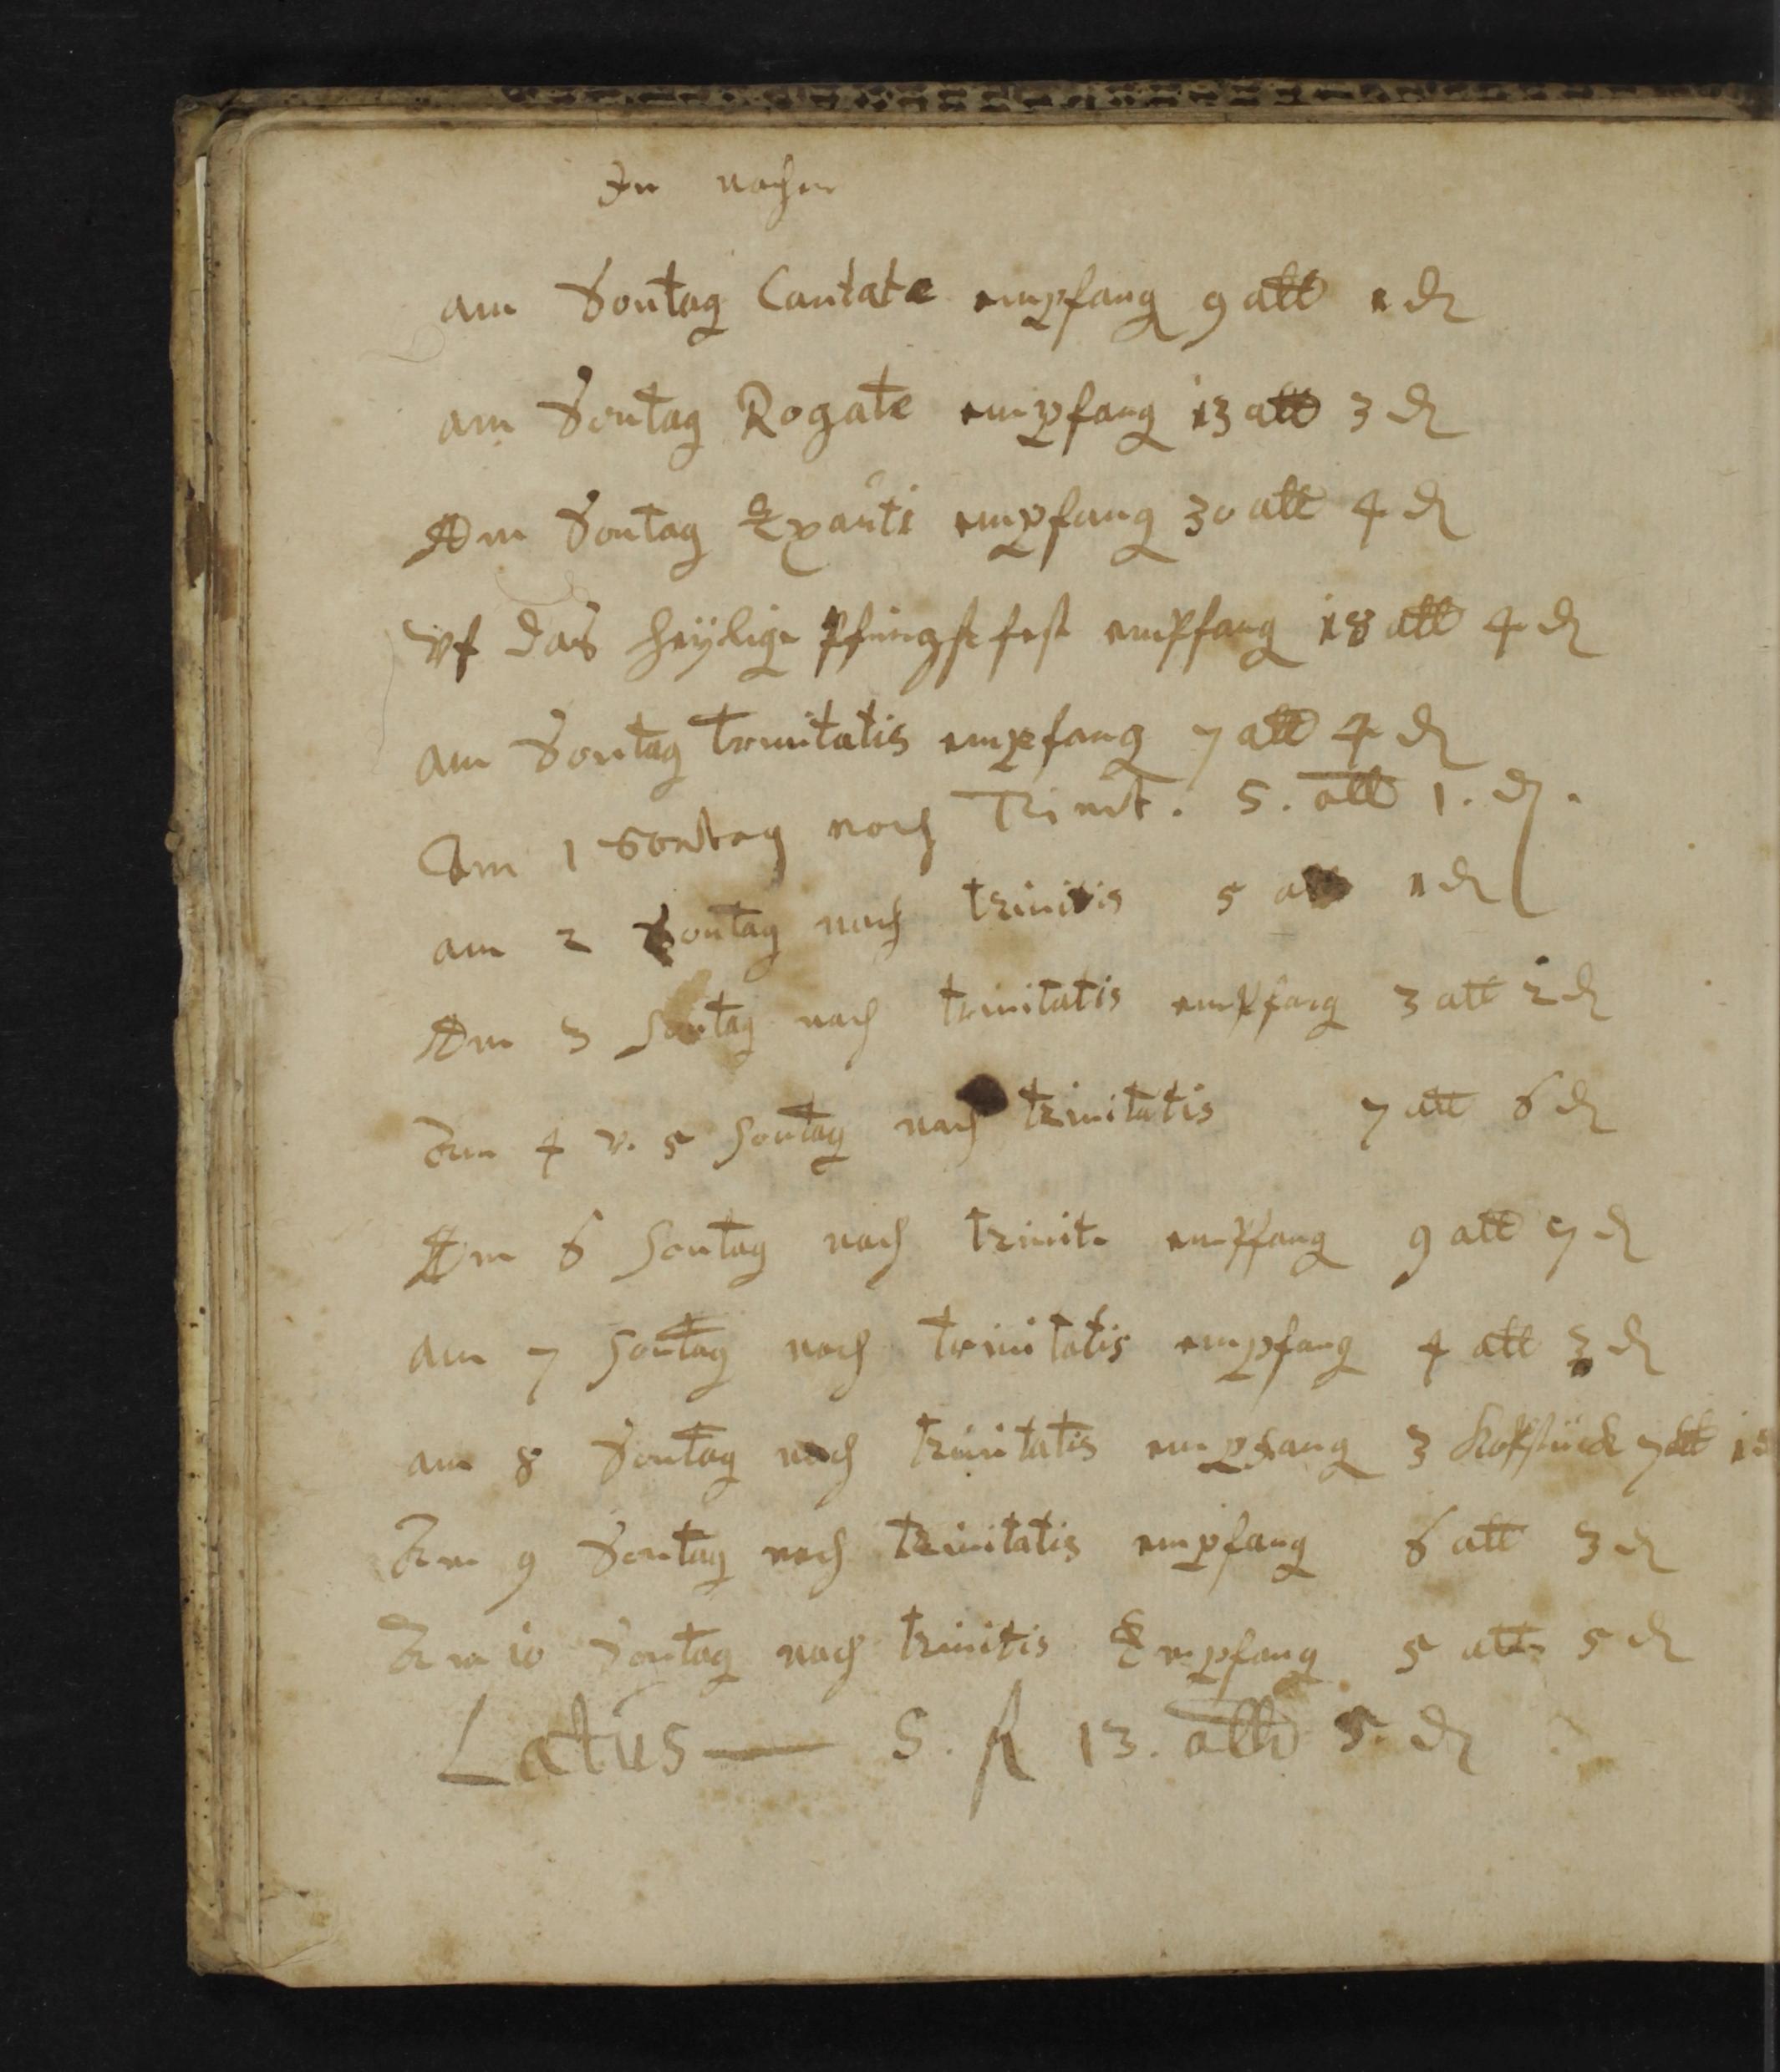 In nahm
am Sontag Cantate empfang 9 alb 1 ₰
am Sontag Rogate empfang 13 alb 3 ₰
Am Sontag Exaudi empfang 30 alb 4 ₰
vf das heÿlige Pfingstfest empfang 18 alb 4 ₰
am Sontag trinitatis empfang 7 alb 4 ₰
Am 1 Sontag nach Trinit. 5. alb 1. ₰.
am 2 Sontag nach trinitis 5 alb 1 ₰
Am 3 Sontag nach trinitatis empfang 3 alb 2 ₰
Am 4 v. 5 Sontag nach trinitatis 7 alb 6 ₰
Am 6 Sontag nach trinit. empfang 9 alb 7 ₰
am 7 Sontag nach trinitatis empfang 4 alb 3 ₰
am 8 Sontag nach trinitatis empfang 3 Kopstück 7 alb
Am 9 Sontag nach trinitatis empfang 6 alb 3 ₰
Am 10 Sontag nach trinitis Empfang 5 alb 5 ₰
Latus — 5. fl 13. alb 5. ₰